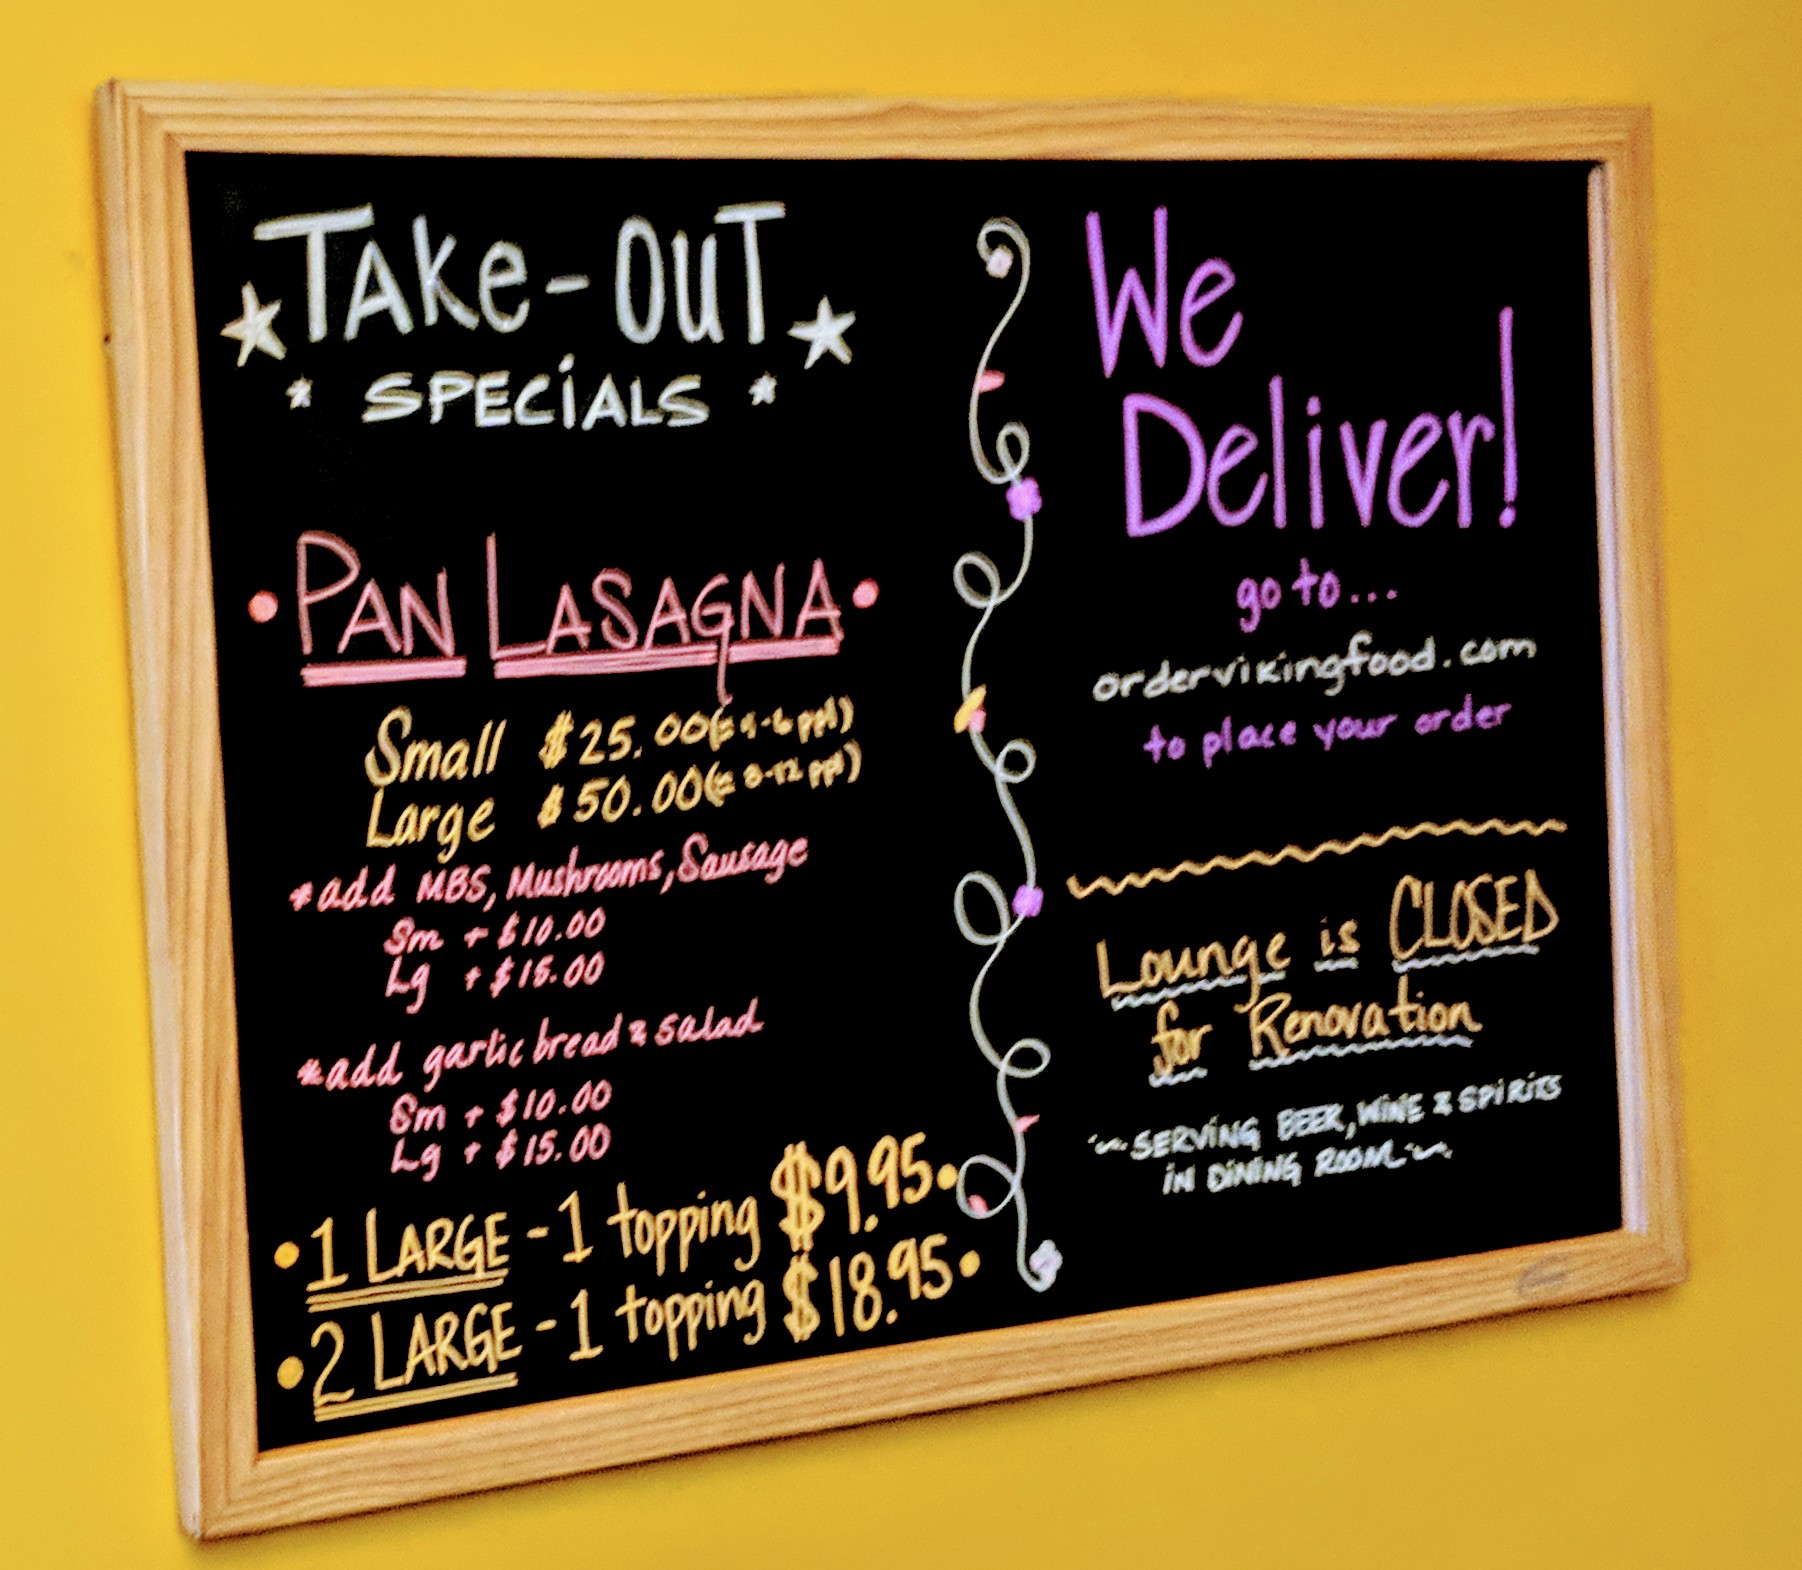 TAke-OuT
SPECiALS
PAN LASAgNA
Small $25.00(≈ 4-6 ppl)
Large $50.00(≈ 8-12 ppl)
*add MBS, Mushrooms, Sausage
Sm + $10.00
Lg + $15.00
*add garlic bread & salad
Sm + $10.00
Lg + $15.00
1 LARGE - 1 topping $9.95
2 LARGE - 1 topping $18.95
We
Deliver!
go to...
ordervikingfood.com
to place your order
Lounge is CLOSED
for Renovation
~SERViNG BEER, WiNE & SPiRiTS
iN DiNiNG ROOM~